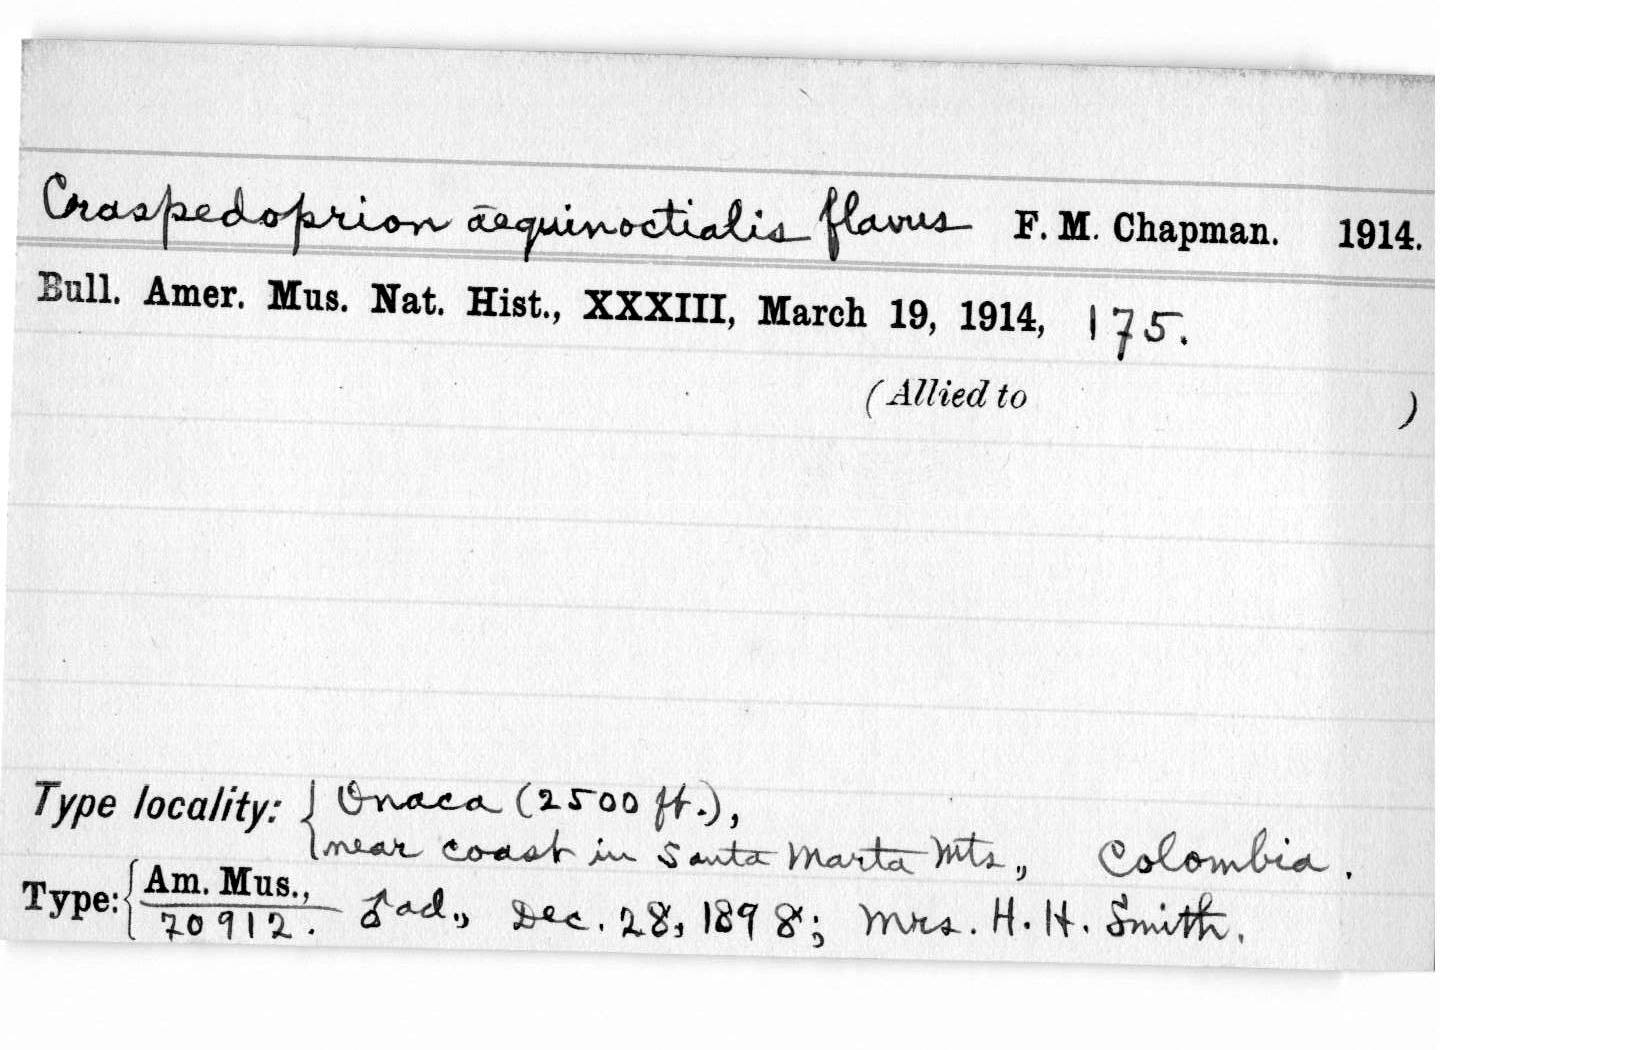 Craspedoprion aequinoctialis flavus F. M. Chapman. 1914.
Bull. Amer. Mus. Nat. Hist., XXXIII, March 19, 1914, 175.
(Allied to )
Type locality: { Onaca (2500 ft.),
near coast in Santa Marta Mts., Colombia.
Type: { Am. Mus.,
70912. ♂ ad., Dec. 28, 1898; Mrs. H. H. Smith.